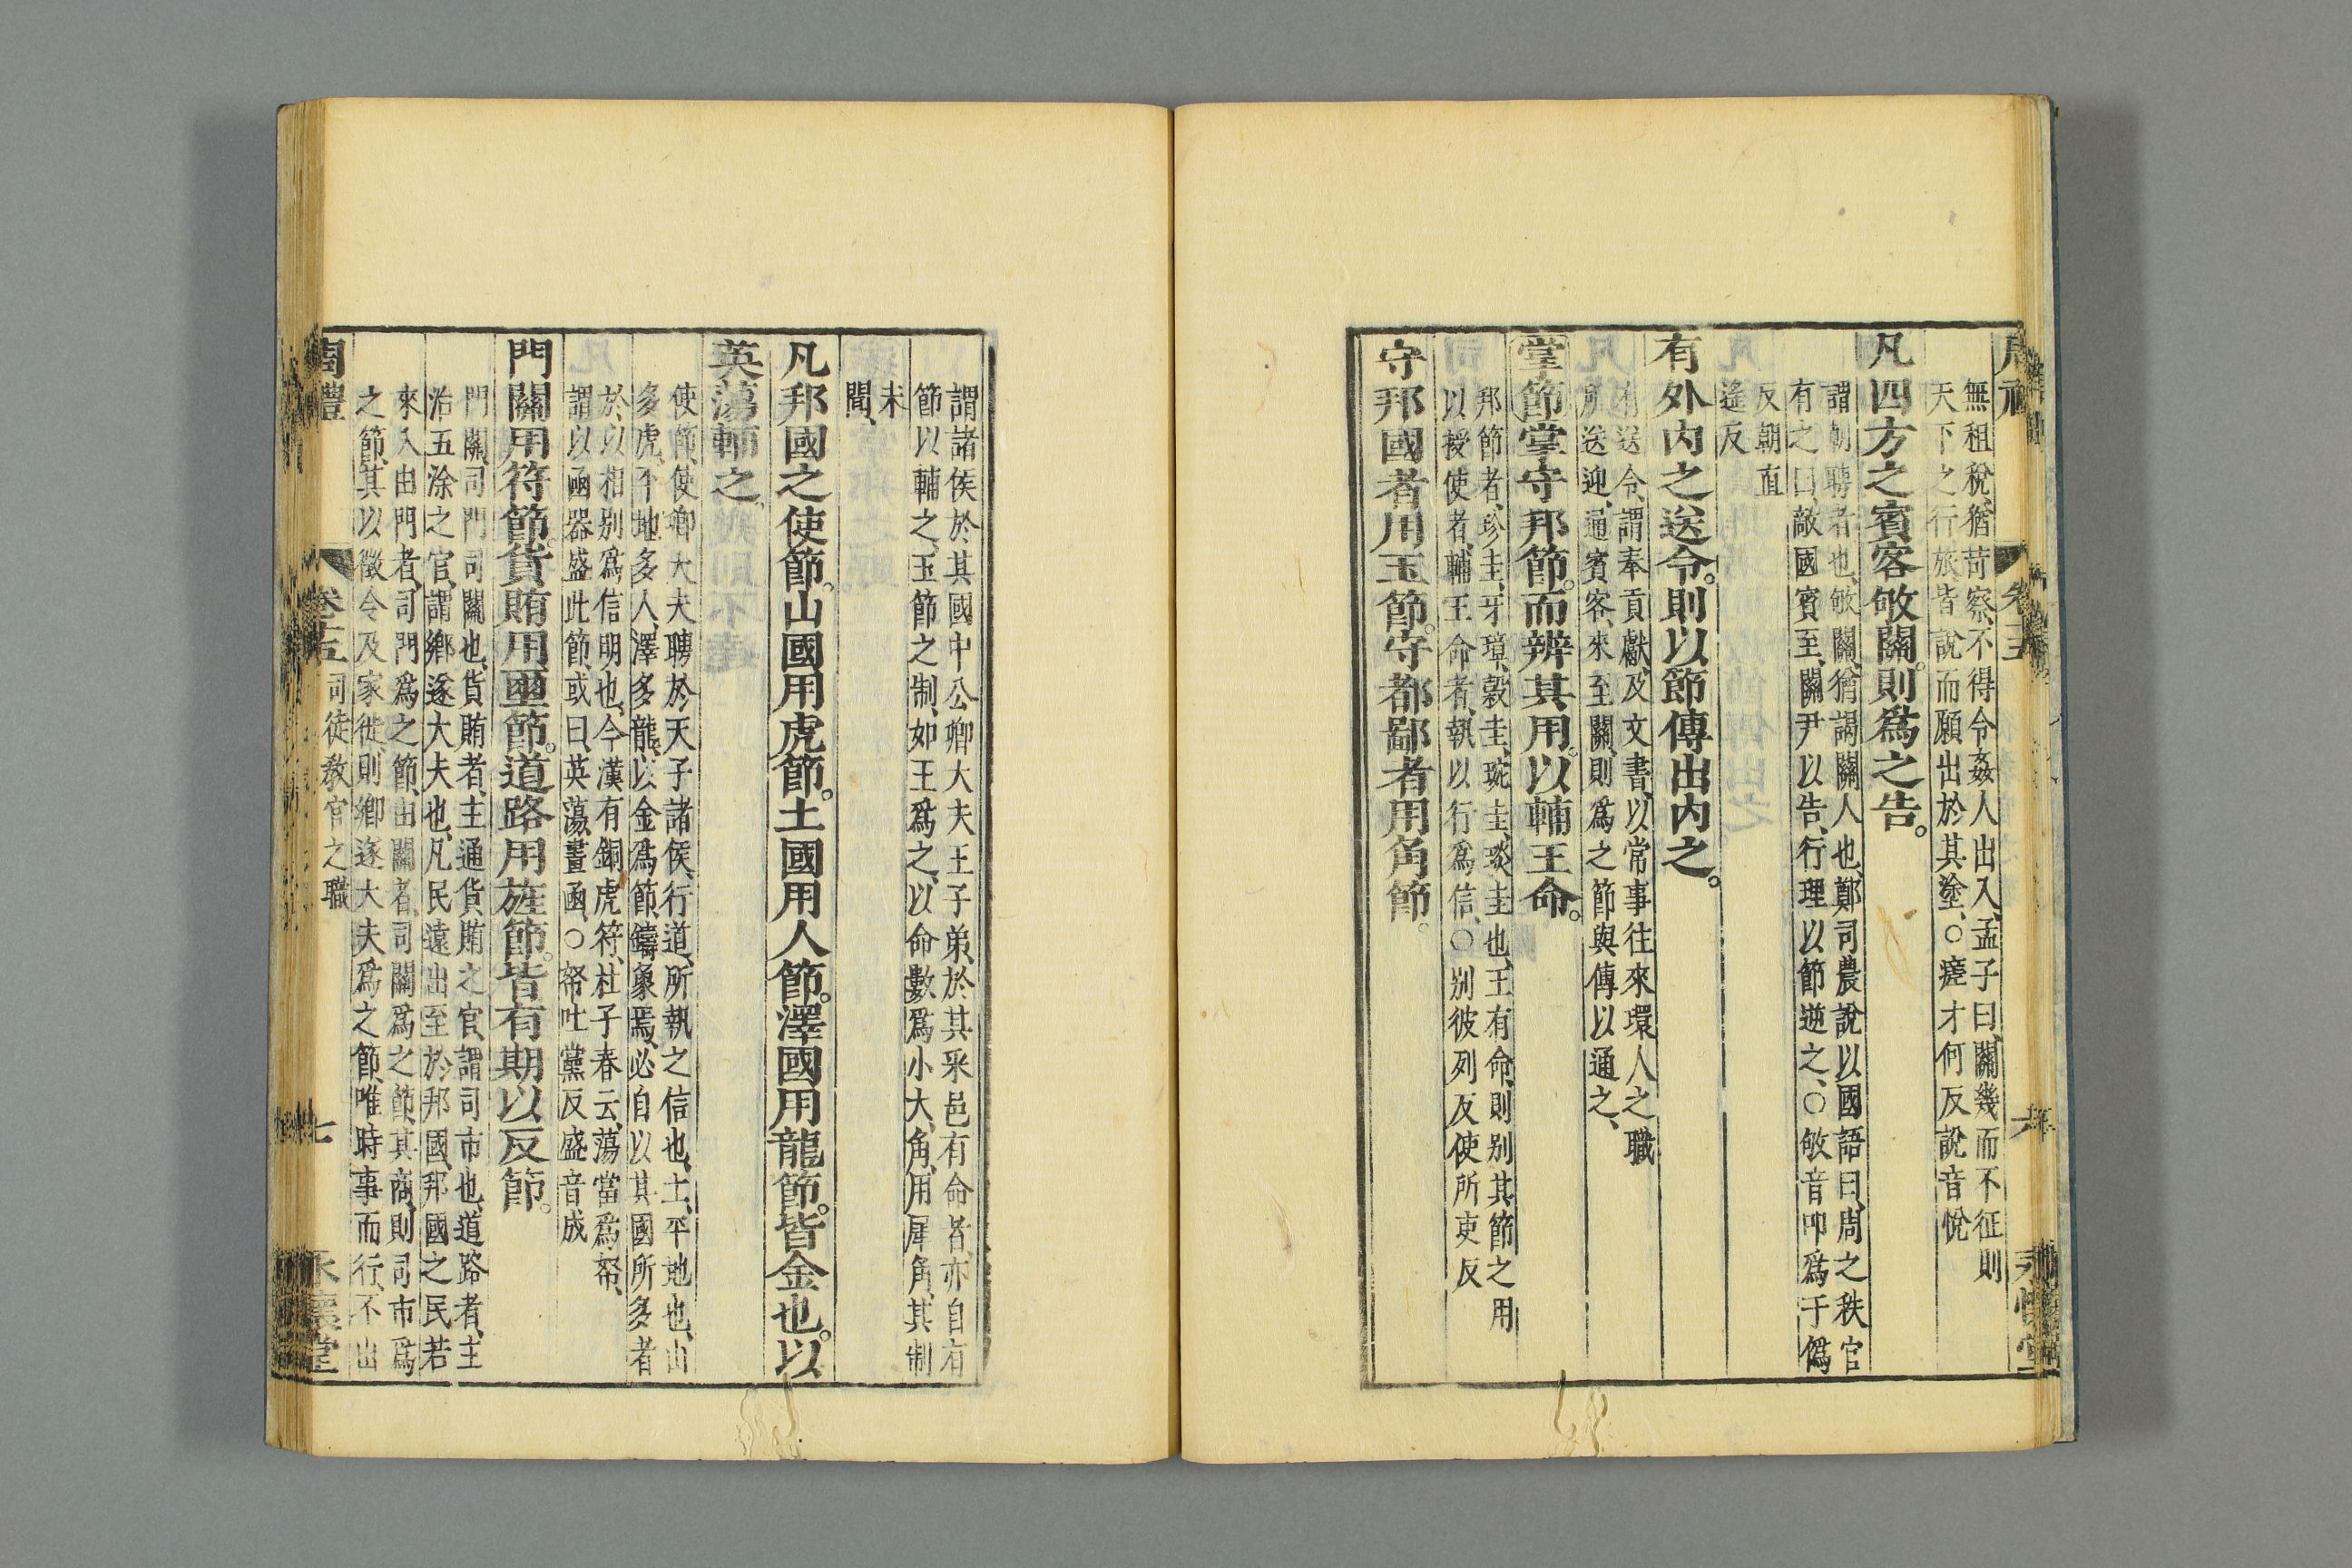 無租稅猶苛察不得令姦人出入孟子曰關幾而不征則
天下之行旅皆說而願出於其塗○瘥才何反說音悅
凡四方之賓客敂關則爲之告
謂朝聘者也敂關猶謁關人也鄭司農說以國語曰周之秩官
有之曰敵國賓至關尹以告行理以節逆之○敂音叩爲于僞
反朝直
遙反
有外內之送令則以節傳出內之
有送令謂奉貢獻及文書以常事往來環人之職
所送迎通賓客來至關則爲之節與傳以通之
掌節掌守邦節而辨其用以輔王命
邦節者珍圭牙璋穀圭琬圭琰圭也王有命則别其節之用
以授使者輔王命者執以行爲信○别彼列反使所吏反
守邦國者用玉節守都鄙者用角節
謂諸侯於其國中公卿大夫王子弟於其采邑有命者亦自有
節以輔之玉節之制如王爲之以命數爲小大角用犀角其制
未
聞
凡邦國之使節山國用虎節土國用人節澤國用龍節皆金也以
英蕩輔之
使節使卿大夫聘於天子諸侯行道所執之信也土平地也山
多虎平地多人澤多龍以金爲節鑄象焉必自以其國所多者
於以相别爲信明也今漢有銅虎符杜子春云蕩當爲帑
謂以函器盛此節或曰英蕩畫函○帑吐黨反盛音成
門關用符節貨賄用璽節道路用旌節皆有期以反節
門關司門司關也貨賄者主通貨賄之官謂司市也道路者主
治五涂之官謂鄉遂大夫也凡民遠出至於邦國邦國之民若
來入由門者司門爲之節由關者司關爲之節其商則司市爲
之節其以徵令及家徙則鄉遂大夫爲之節唯時事而行不出
周禮 卷十五 司徒教官之職 七 永懷堂